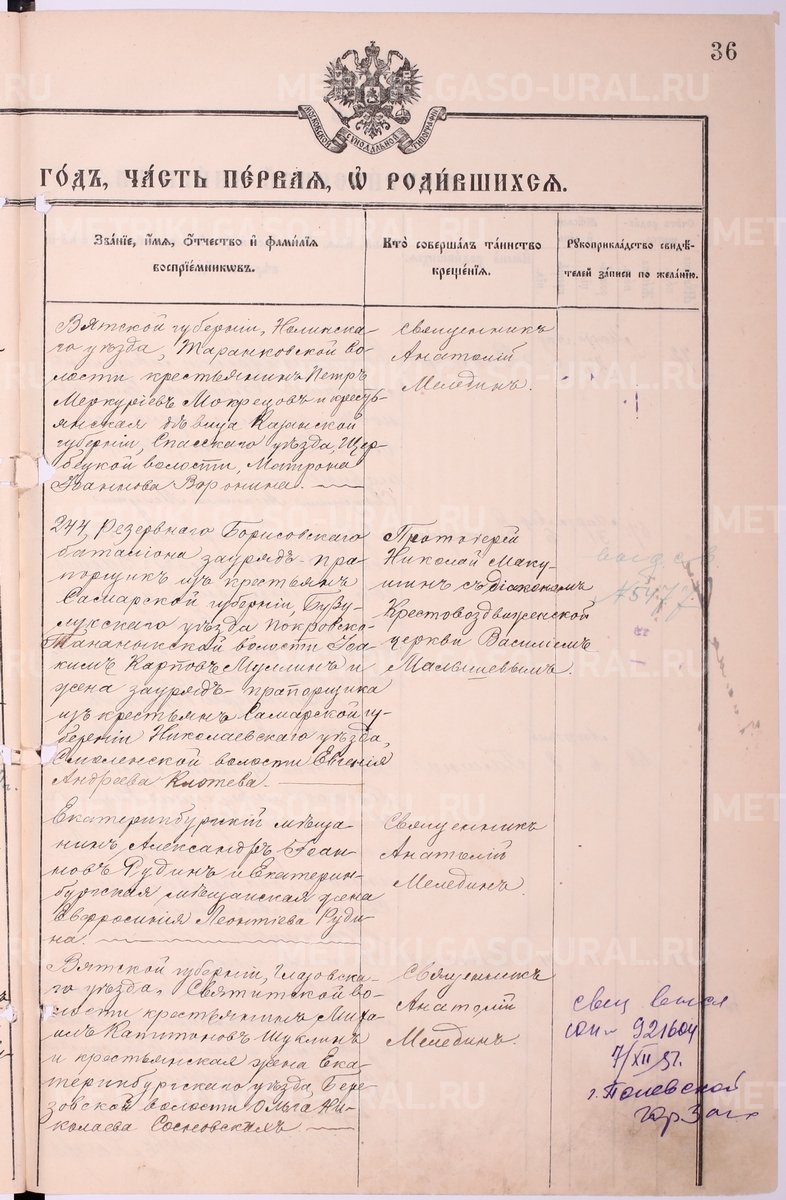 36
МОСКОВСКОЙ СѴНОДАЛЬНОЙ ТИПОГРАФІИ
ГО́ДЪ, ЧА́СТЬ ПЕ́РВАЯ, Ѡ҆ РОДИ́ВШИХСЯ.
Зва́нїе, и҆́мя, ѻ҆́тчество и҆ фами́лїя
воспрїе́мникѡвъ.
Кто̀ соверша́лъ та́инство
креще́нїя.
Рꙋкоприкла́дство свидѣ́-
телей за́писи по жела́нїю.
Вятской губерніи, Нолинска-
го уѣзда, Таранковской во-
лости крестьянинъ Петръ
Меркуріевъ Мокрецовъ и кресть-
янская дѣвица Казанской
губерніи, Спасскаго уѣзда, Щер-
бецкой волости, Матрона
Іоаннова Воронина.
Священникъ
Анатолій
Мелединъ.
244 Резервнаго Борисовскаго
баталіона зауряд-пра-
порщикъ изъ крестьянъ
Самарской губерніи, Бузу-
лукскаго уѣзда Покровско-
Тананыкской волости Іоа-
кимъ Карповъ Муллинъ и
жена зауряд-прапорщика
изъ крестьянъ Самарской гу-
берніи Николаевскаго уѣзда,
Смоленской волости Евгенія
Андреева Клотева.
Протоіерей
Николай Маку-
шинъ съ діакономъ
Крестовоздвиженской
церкви Василіемъ
Малышевымъ.
№5477
Екатеринбургскій мѣща-
нинъ Александръ Іоан-
новъ Рудинъ и Екатерин-
бургская мѣщанская жена
Евфросинія Леонтіева Руди-
на.
Священникъ
Анатолій
Мелединъ.
Вятской губерніи, Глазовска-
го уѣзда, Святитской во-
лости крестьянинъ Миха-
илъ Капитоновъ Шуклинъ
и крестьянская жена Ека-
теринбургскаго уѣзда, Бере-
зовской волости Ольга Ни-
колаева Сосновскихъ.
Священникъ
Анатолій
Мелединъ.
921604
7/XII 51.
г. Полевской
гор Загс
METRIKI.GASO-URAL.RU